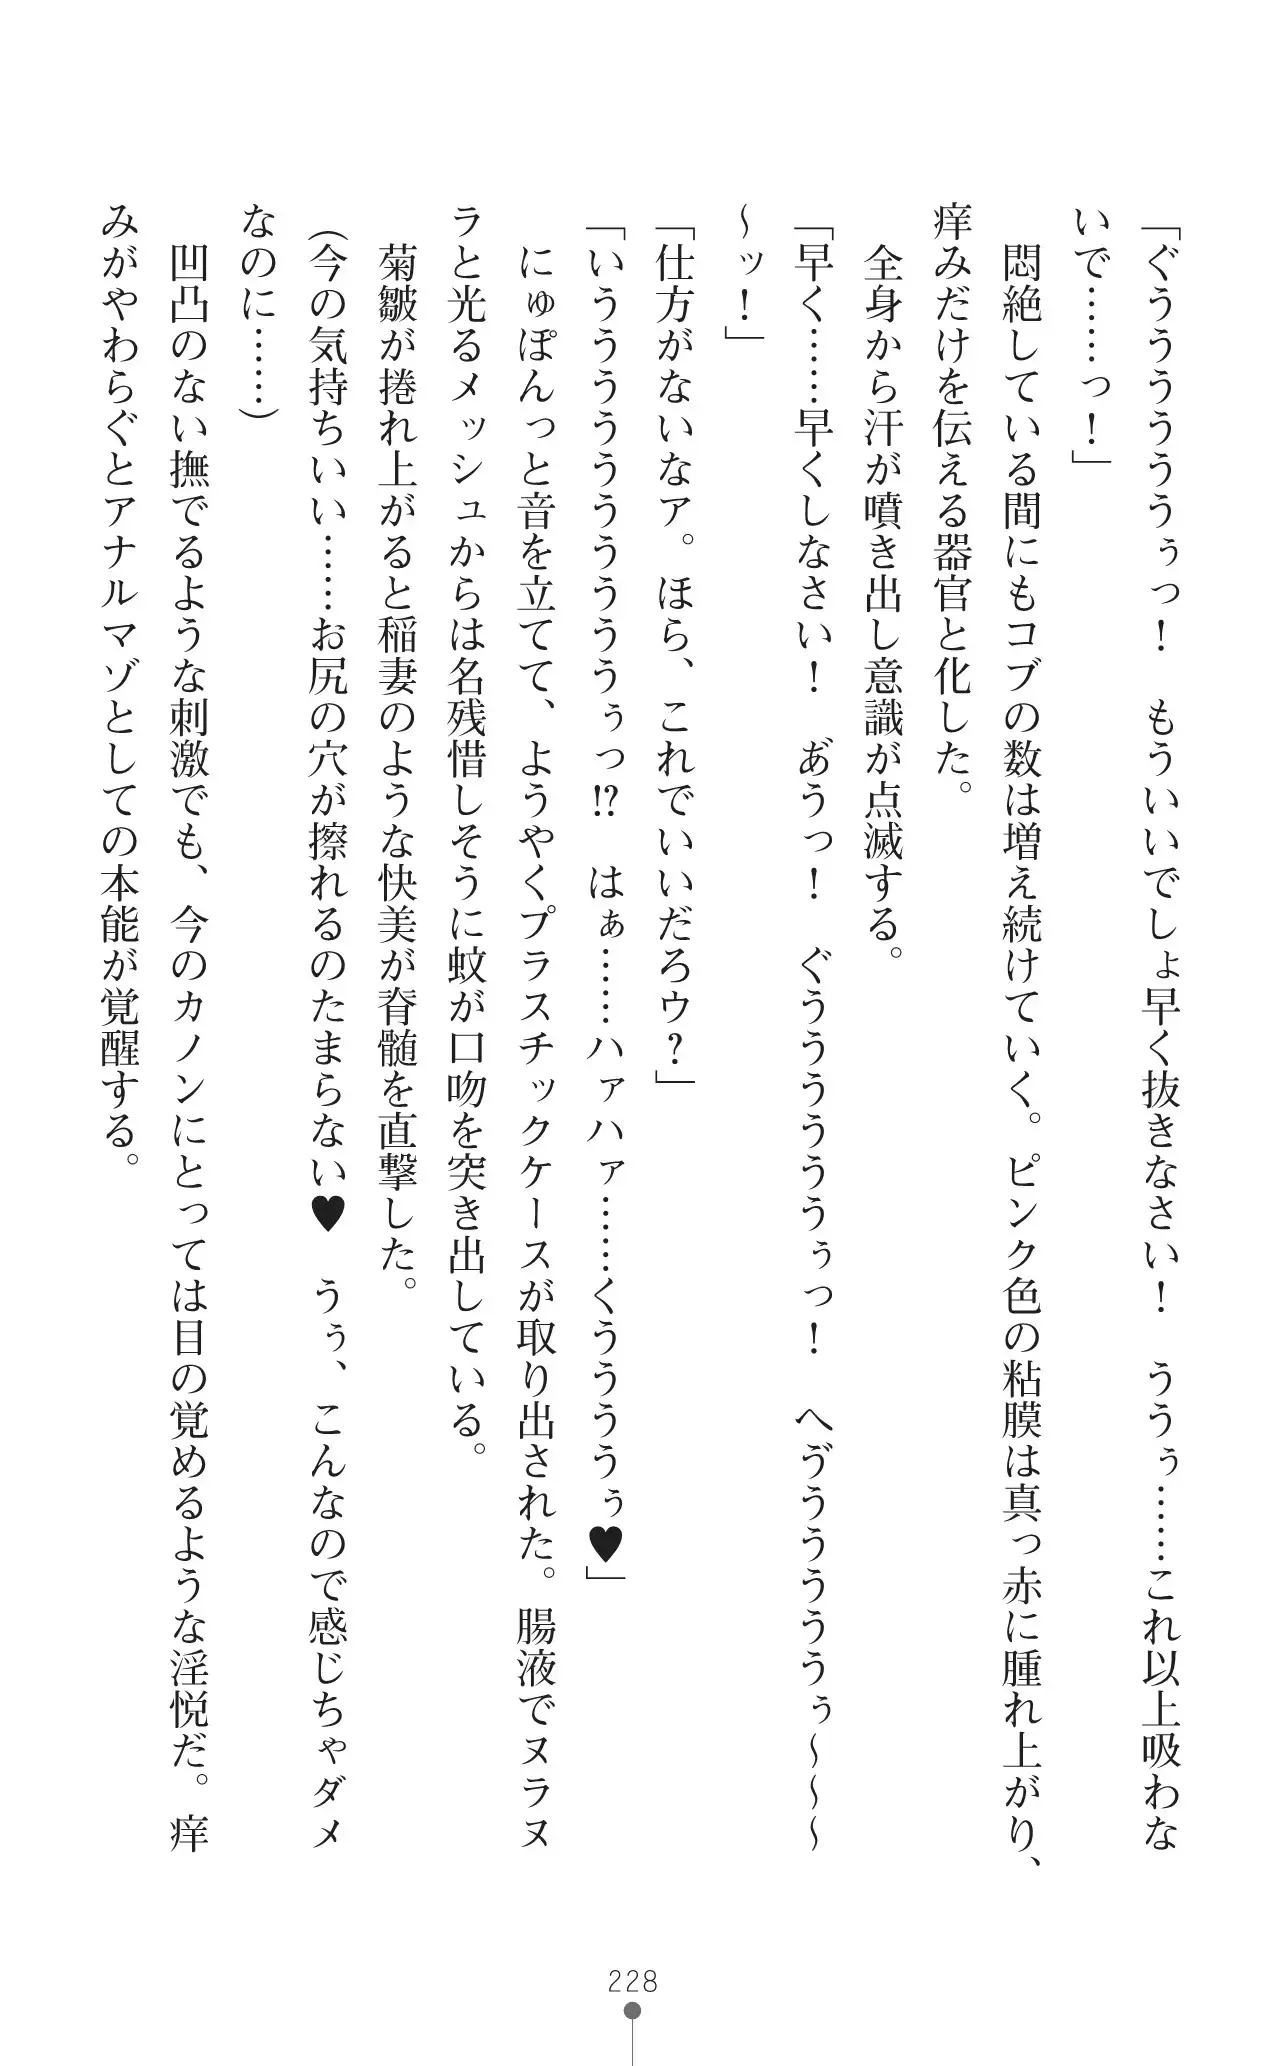 「ぐうううううぅっ！　もういいでしょ早く抜きなさい！　ううぅ……これ以上吸わな
いで……っ！」
　悶絶している間にもコブの数は増え続けていく。ピンク色の粘膜は真っ赤に腫れ上がり、
痒みだけを伝える器官と化した。
　全身から汗が噴き出し意識が点滅する。
「早く……早くしなさい！　あ゛うっ！　ぐううううううぅっ！　へゔううううううぅ～～～
～ッ！」
「仕方がないなァ。ほら、これでいいだろウ？」
「いうううううううううぅっ!?　はぁ……ハァハァ……くううううぅ♥」
　にゅぽんっと音を立てて、ようやくプラスチックケースが取り出された。腸液でヌラヌ
ラと光るメッシュからは名残惜しそうに蚊が口吻を突き出している。
　菊皺が捲れ上がると稲妻のような快美が脊髄を直撃した。
（今の気持ちいい……お尻の穴が擦れるのたまらない♥　うぅ、こんなので感じちゃダメ
なのに……）
　凹凸のない撫でるような刺激でも、今のカノンにとっては目の覚めるような淫悦だ。痒
みがやわらぐとアナルマゾとしての本能が覚醒する。
228